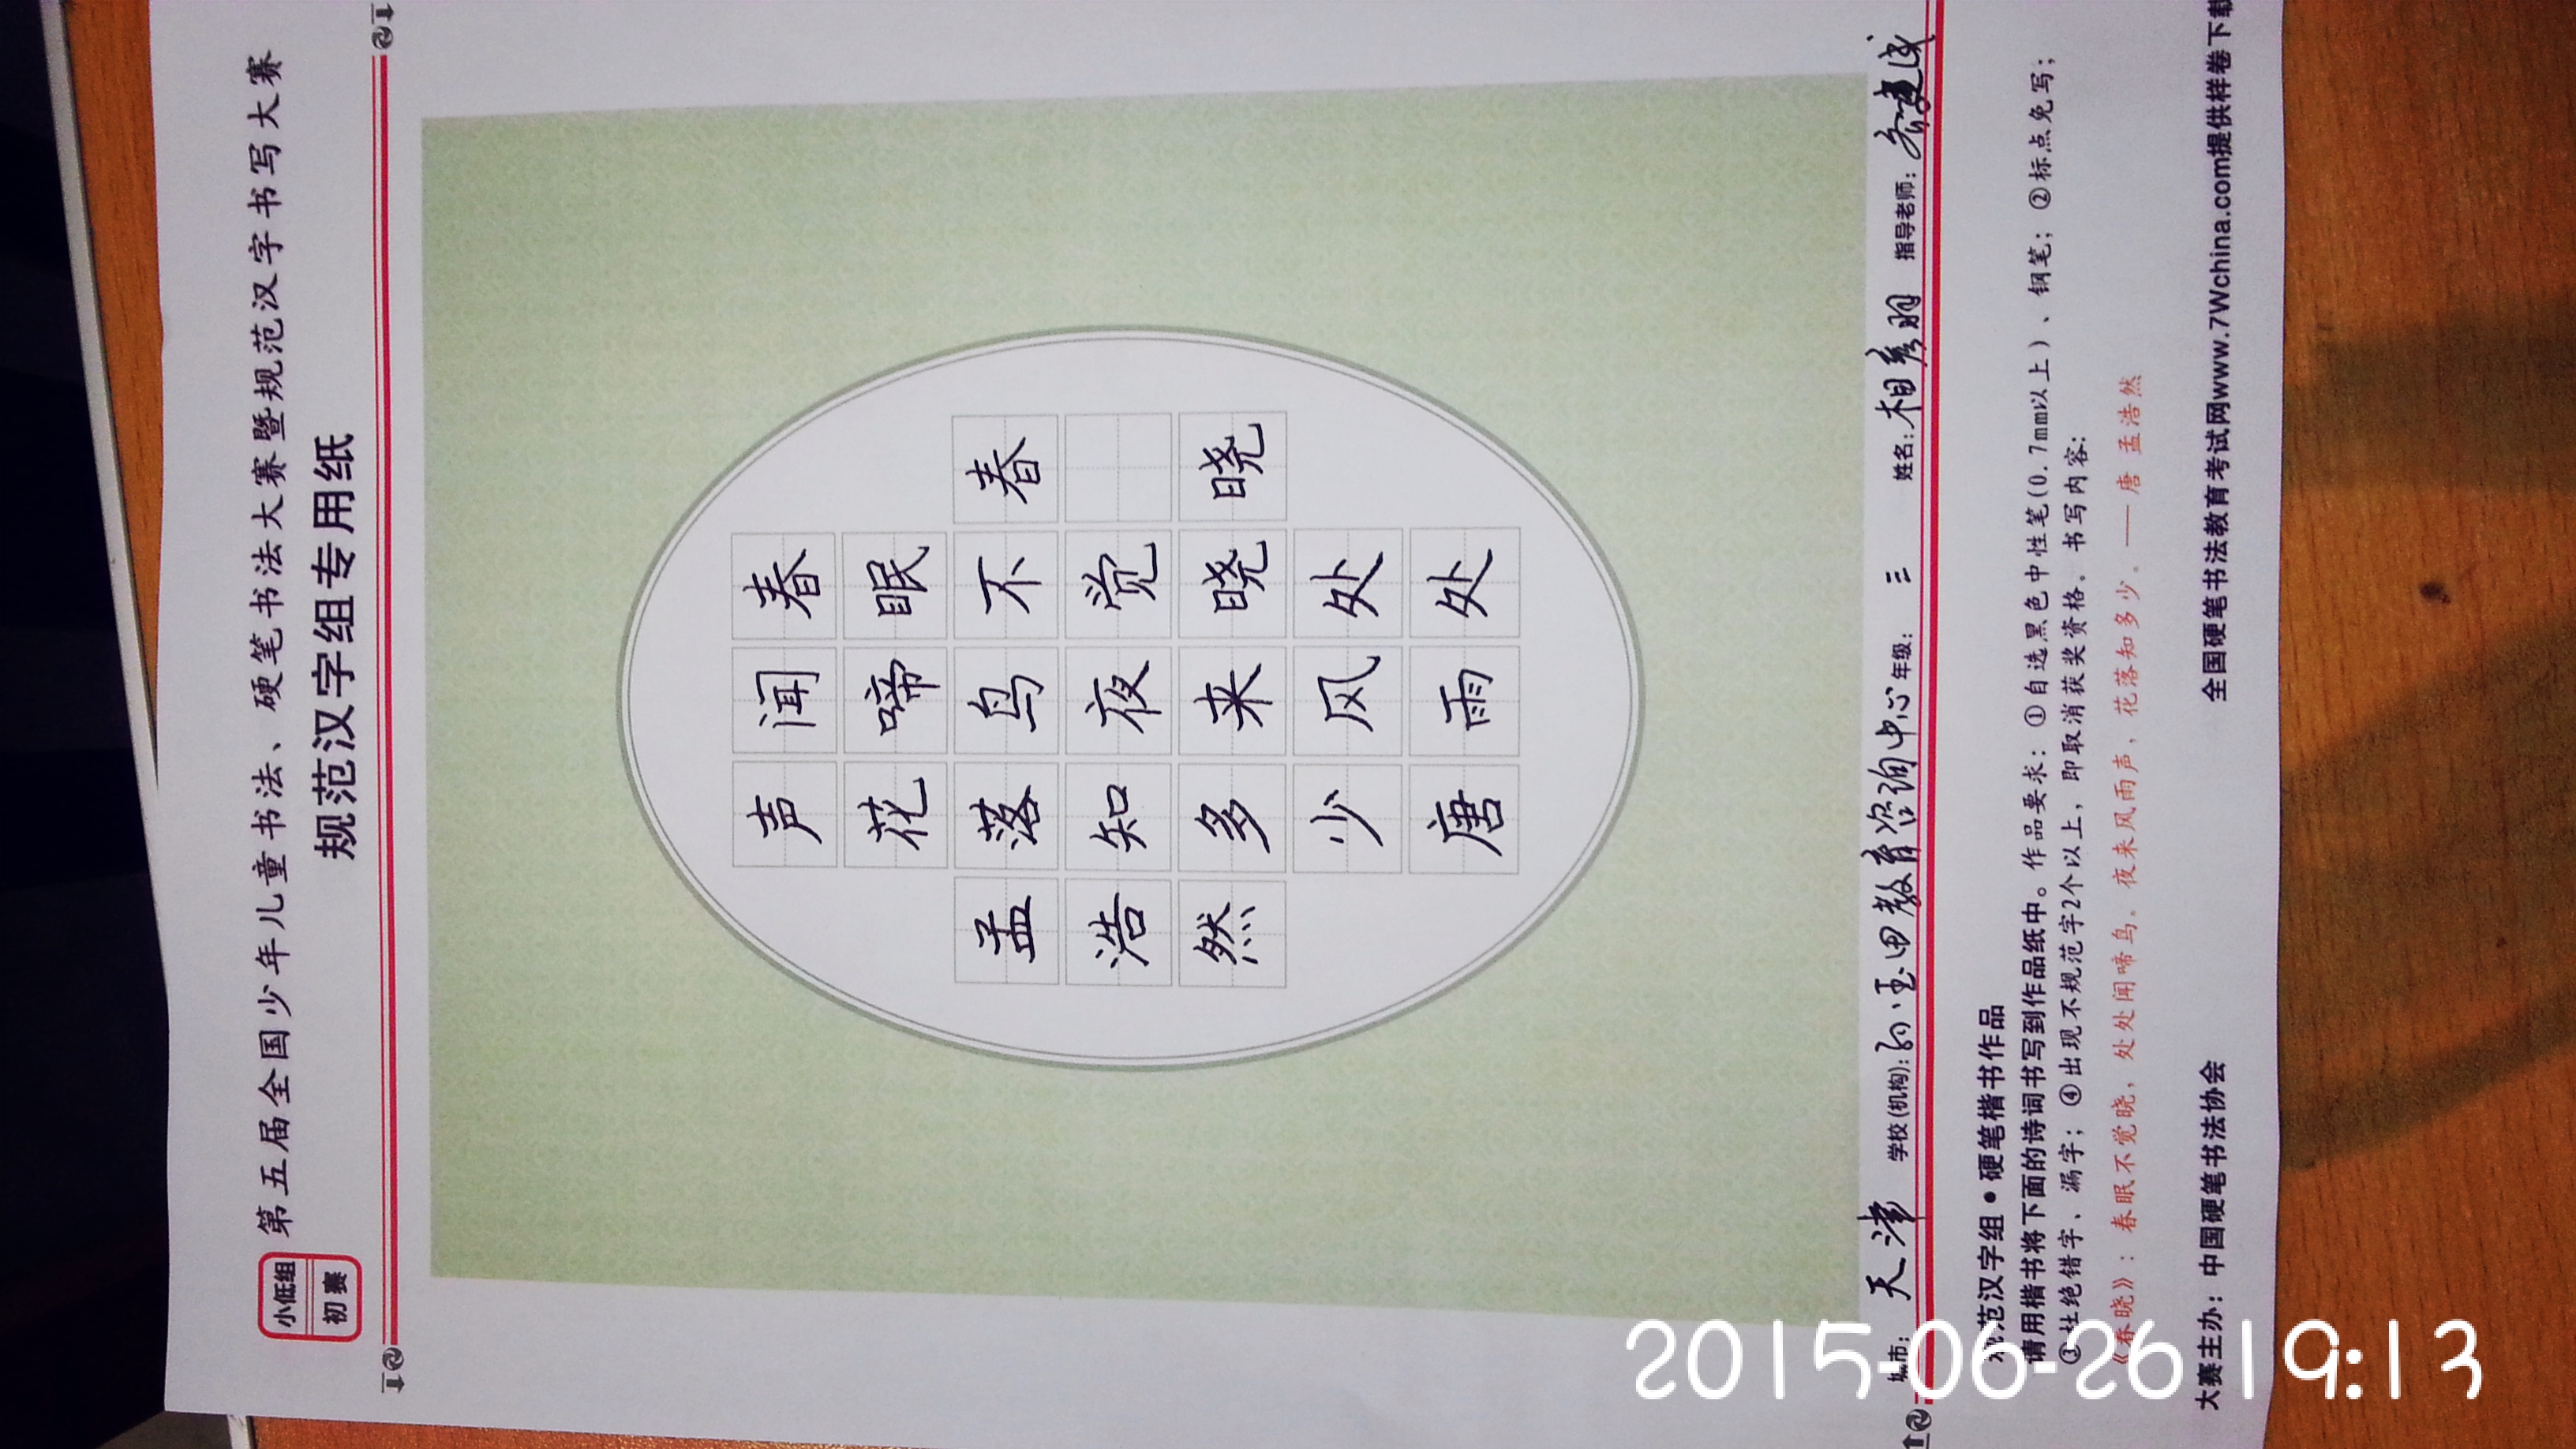 小低组
初赛
第五届全国少年儿童书法、硬笔书法大赛暨规范汉字书写大赛
规范汉字组专用纸
春晓
春眠不觉晓处处
闻啼鸟夜来风雨
声花落知多少唐
孟浩然
城市: 天津 学校(机构): 玉田教育咨询中心 年级: 三 姓名: 相彦羽 指导老师:
规范汉字组●硬笔楷书作品
请用楷书将下面的诗词书写到作品纸中。作品要求：①自选黑色中性笔(0.7mm以上)、钢笔；②标点免写；
③杜绝错字、漏字；④出现不规范字2个以上，即取消获奖资格。书写内容:
《春晓》：春眠不觉晓，处处闻啼鸟。夜来风雨声，花落知多少。——唐 孟浩然
大赛主办：中国硬笔书法协会 全国硬笔书法教育考试网www.7Wchina.com提供样卷下载
2015-06-26 19:13